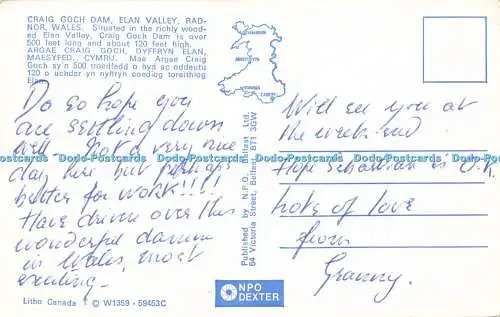 CRAIG GOCH DAM, ELAN VALLEY, RAD-
NOR, WALES. Situated in the richly wood-
ed Elan Valley, Craig Goch Dam is over
500 feet long and about 120 feet high.
ARGAE CRAIG GOCH, DYFFRYN ELAN,
MAESYFED, CYMRU. Mae Argae Craig
Goch sy'n 500 troedfedd o hyd ac oddeutu
120 o uchder yn nyffryn coediog toreithiog
Elan.
Do so hope you
are settling down
well. Not a very nice
day here but perhaps
better for work!!!!
Have driven over this
wonderful damm
in Wales, most
exciting.-
Litho Canada © W1359 - 59453C
Published by N.P.O. Belfast Ltd.
64 Victoria Street, Belfast BT1 3GW
NPO
DEXTER
Will see you at
the week-end.
Hope Sebastian is O.K.
Lots of love
from
Granny.
Dodo-Postcards Dodo-Postcards Dodo-Postcards Dodo-Postcards